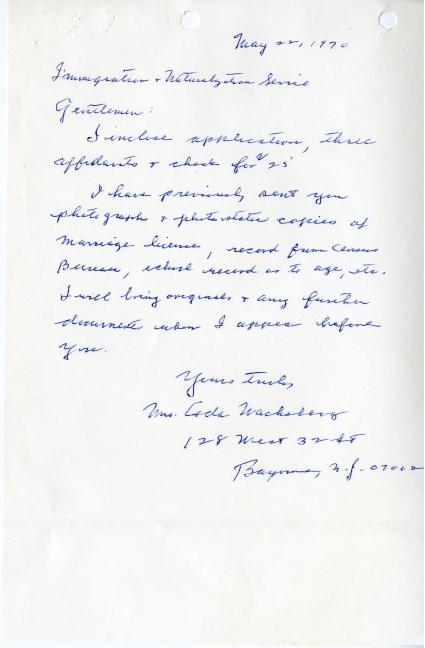 May 22, 1970
Immigration + Naturalization Servic
Gentlemen:
I inclose application, three
affidavits + check for $25
I have previously sent you
photograph + photostatic copies of
marriage license, record from Census
Bureau, school record as to age, etc.
I will bring originals + any further
documents when I appear before
you.
Yours truly,
Mrs. Wachsberg
128 West 32 St
Bayonne, N.J. 07002